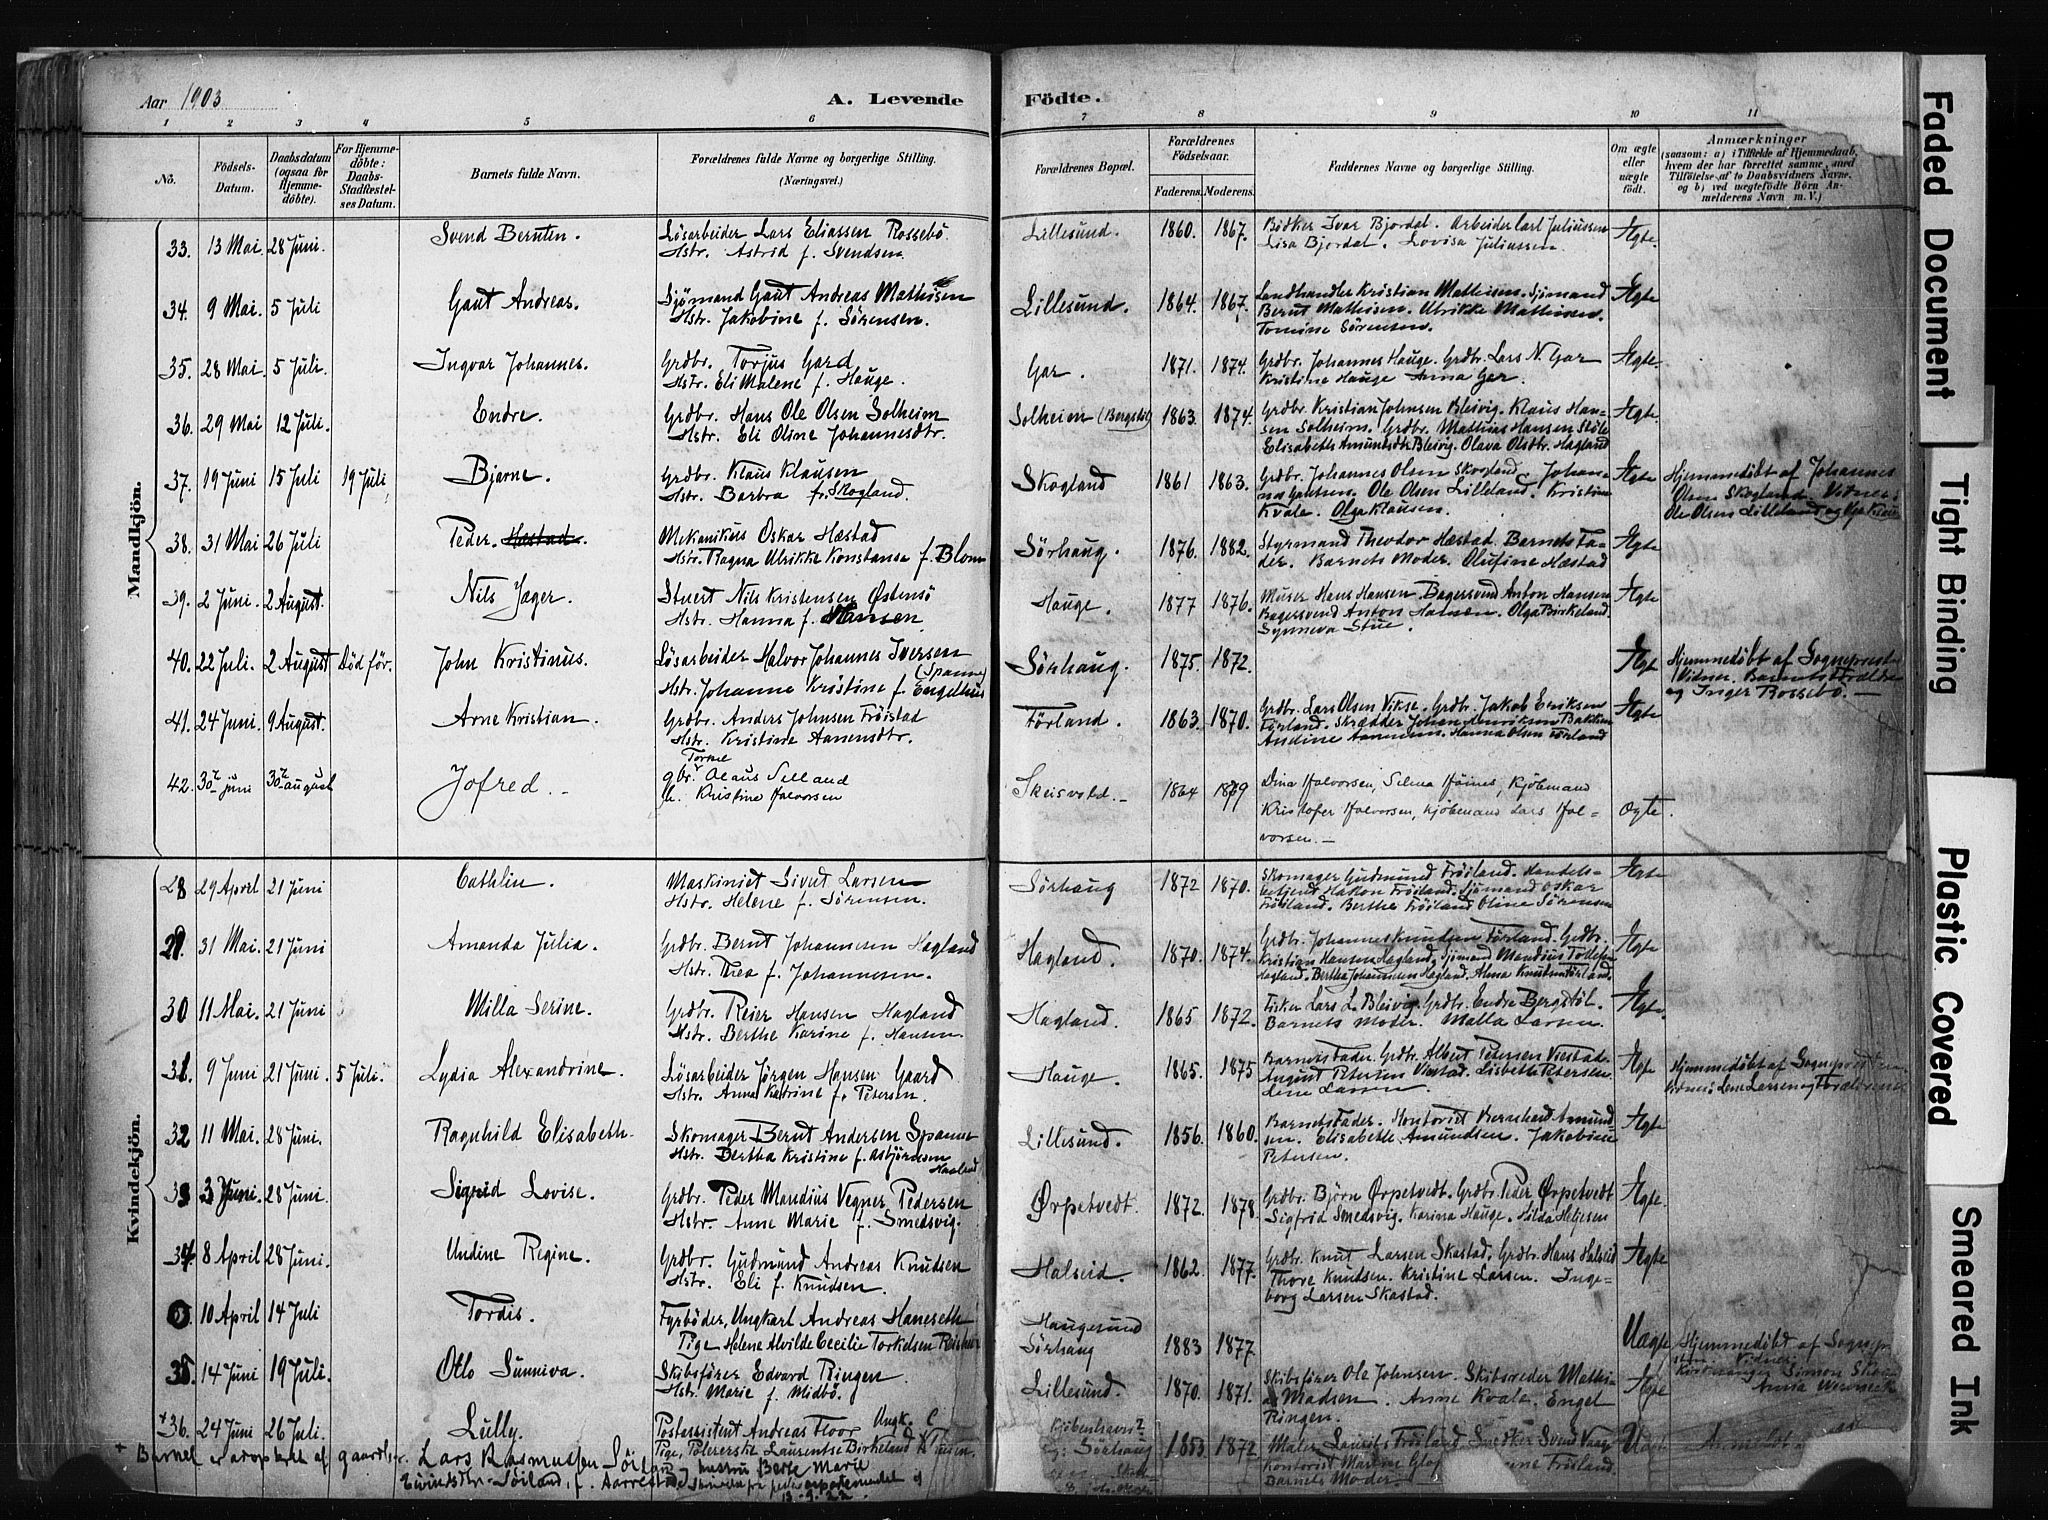 Aar 1903
A. Levende
Födte.
1 2 3 4 5 6 7 8 9 10 11
No.
Födsels-Datum.
Daabsdatum (ogsaa for Hjemme-döbte).
For Hjemme-döbte: Daabs-Stadfæstel-ses Datum.
Barnets fulde Navn.
Forældrenes fulde Navne og borgerlige Stilling. (Næringsvei.)
Forældrenes Bopæl.
Forældrenes Födselsaar.
Faderens. Moderens.
Faddernes Navne og borgerlige Stilling.
Om ægte eller uægte födt.
Anmærkninger
(saasom: a) i Tilfælde af Hjemmedaab, hvem der har forrettet samme, med Tilföielse af to Daabsvidners Navne, og b) ved uægtefödte Börn An-melderens Navn m. V.)
Mandkjön.
33. 13 Mai. 28 Juni. Svend Berntin. Lösarbeider Lars Eliassen Rossebö Lillesund. 1860. 1867. Bödker Ivar Bjordal. Arbeider Carl Juliussen Ægte.
Hstr. Astrid f. Svendsen. Lisa Bjordal. Lovisa Juliassen.
34. 9 Mai. 5 Juli Gaut Andreas. Sjømand Gaut Andreas Mathisen Lillesund. 1864. 1867. Landhandler Kristian Mathisen. Sjömand Ægte
Hstr. Jakobine f. Sørensen. Berut Mathisen. Ulrikke Mathisen.
Tomine Sörensen.
35. 28 Mai. 5 Juli. Ingvar Johannes. Grdbr. Torjus Gard Gar. 1871. 1874. Grdbr. Johannes Hauge. Grdbr. Lars N. Gar Ægte.
Hstr. Eli Malene f. Hauge. Kristine Hauge Anna Gar.
36. 29 Mai 12 Juli. Endre. Grdbr. Hans Ole Olsen Solheim Solheim (Bergstöl) 1863. 1874. Grdbr. Kristian Johnsen Bleivig. Klaus Han- Ægte.
Hstr. Eli Oline Johannesdtr. sen Solheim. Grdbr. Mathias Hansen Stöle
Elisabeth Amundsdtr. Bleivig. Olava Olsdtr. Hagland
37. 19 Juni 15 Juli 19 Juli Bjarne. Grdbr. Klaus Klausen Skogland 1861 1863. Grdbr. Johannes Olsen Skogland. Johan- Ægte Hjemmedöbt af Johannes
Hstr. Barbra f. Skogland. nes Gautsen. Ole Olsen Lilleland. Kristine Olsen Skogland. Vidner:
Kvale. Olga Klausen. Ole Olsen Lilleland og Olga Klaus
38. 31 Mai 26 Juli Peder. Hæstad. Mekanikus Oskar Hæstad Sörhaug. 1876. 1882. Styrmand Theodor Hæstad. Barnets Fa- Ægte
Hstr. Ragna Ulrikke Konstanse f. Blom der. Barnets Moder. Olufine Hæstad
39. 2 Juni. 2 August. Nils Jæger. Stuert Nils Kristensen Østensö Hauge. 1877 1876. Murer Hans Hansen. Bagersvend Anton Hansen Ægte
Hstr. Hanna f. Hansen. Bagersvend Anton Hansen. Olga Birkeland.
Synneva Stue.
40. 22 Juli. 2 August Död för. John Kristinus. Lösarbeider Halvor Johannes Iversen (Spanne) Sörhaug. 1875. 1872. Ægte Hjemmedöbt af Sognepresten
Hstr. Johanne Kristine f. Engelhus Vidner. Barnets Forældre
og Inger Rossebö.
41. 24 Juni. 9 August. Arne Kristian. Grdbr. Anders Johnsen Fröistad Förland. 1863. 1870. Grdbr. Lars Olsen Vikse. Grdbr. Jakob Eriksen Ægte
Hstr. Kristine Aanensdtr. Förland. Skrædder Johan Henriksen Bakken
Andine Aanensen. Hanna Olsen Förland
42. 30te juni 30te august Jofred. Torkel gbr. Olaus Selland Skeisvold. 1864 1879 Dina Halvorsen, Selma Höines, Kjöbmand
h. Kristine Halvorsen Kristofer Halvorsen, Kjöbmand Lars Hal- ægte.
vorsen.
Kvindekjön.
28 29 April 21 Juni Cathlin. Maskinist Sivert Larsen Sörhaug 1872 1870. Skomager Gudmund Fröiland. Handels- Ægte
Hstr. Helene f. Sörensen. betjent Hakon Fröiland. Sjömand Oskar
Fröiland. Berthe Fröiland Oline Sörensen
29. 31 Mai. 21 Juni Amanda Julia. Grdbr. Bernt Johannesen Hagland Hagland. 1870. 1874. Grdbr. Johannes Knudsen Förland. Grdbr. Ægte
Hstr. Thea f. Johannesen. Kristian Hansen Hagland. Sjömand Mandius Tollefsen
Hagland. Bertha Johannesen Hagland. Alma Knudsen Förland.
30 11 Mai. 21 Juni Milla Serine. Grdbr. Reier Hansen Hagland Hagland. 1865 1872. Fisker Lars L. Bleivig. Grdbr. Endre Bergstöl. Ægte.
Hstr. Berthe Karine f. Hansen Barnets Moder. Malla Larsen.
31. 9 Juni 21 Juni. 5 Juli. Lydia Alexandrine. Lösarbeider Jörgen Hansen Gaard Hauge. 1865. 1875 Barnets Fader. Grdbr. Albert Petersen Viestad. Ægte Hjemmedöbt af Sognepresten
Hstr. Anna Katrine f. Petersen. August Petersen Viestad. Lisbeth Petersen. Vidner: Lene Larsen og Forældrene
Lene Larsen
32 11 Mai. 28 Juni. Ragnhild Elisabeth. Skomager Bernt Andersen Spanne Lillesund. 1856. 1860. Barnets Fader. Kontorist Bernhard Amund- Ægte
Hstr. Bertha Kristine f. Asbjörnsen Hagland sen. Elisabeth Amundsen. Jakobine
Petersen.
33 3 Juni. 28 Juni. Sigrid Lovise. Grdbr. Peder Mandius Vegner Pedersen Ørpetvedt. 1872. 1878. Grdbr. Björn Ørpetvedt. Grdbr. Peder Ørpetvedt Ægte.
Hstr. Anne Marie f. Smedsvig. Sigfrid Smedsvig. Karina Hauge. Hilda Heljesen
34 8 April 28 Juni. Undine Regine. Grdbr. Gudmund Andreas Knudsen Halseid. 1862. 1877. Grdbr. Knut Larsen Skastad. Grdbr. Hans Halseid Ægte
Hstr. Eli f. Knudsen. Thore Knudsen. Kristine Larsen. Inge-
borg Larsen Skastad.
10 April 14 Juli Tordis. Fyrböder, Ungkarl Andreas Haneseth Haugesund 1883 1877 Uægte Hjemmedöbt af Sognepr
Pige Helene Alvilde Cecilie Torkelsen Sörhaug Vidner
35 14 Juni 19 Juli. Otto Sunniva. Skibsförer Edvard Ringen Lillesund. 1870. 1871. Skibsförer Ole Johnsen. Skibsreder Mathi- Ægte
Hstr. Marie f. Midbö. as Madsen. Anne Kvale. Engel
Ringen.
+36. 24 Juni 26 Juli. Lully. Postassistent Andreas Floor Ungk. Kjöbenhavn? Sörhaug 1853 1872 Maler Laurits Fröiland Smedker Svend Vaage Uægte Anmeldt
Pige, Polererske Laurentse Birkeland Kontorist Martin
Barnets Moder
+ Barnet er adopteret af gaardbr. Lars Rasmussen Söiland hustru Berte Marie
Eivindsdtr. Söiland, f. Aarrestad
13.9.22
Faded Document
Tight Binding
Plastic Covered
Smeared Ink